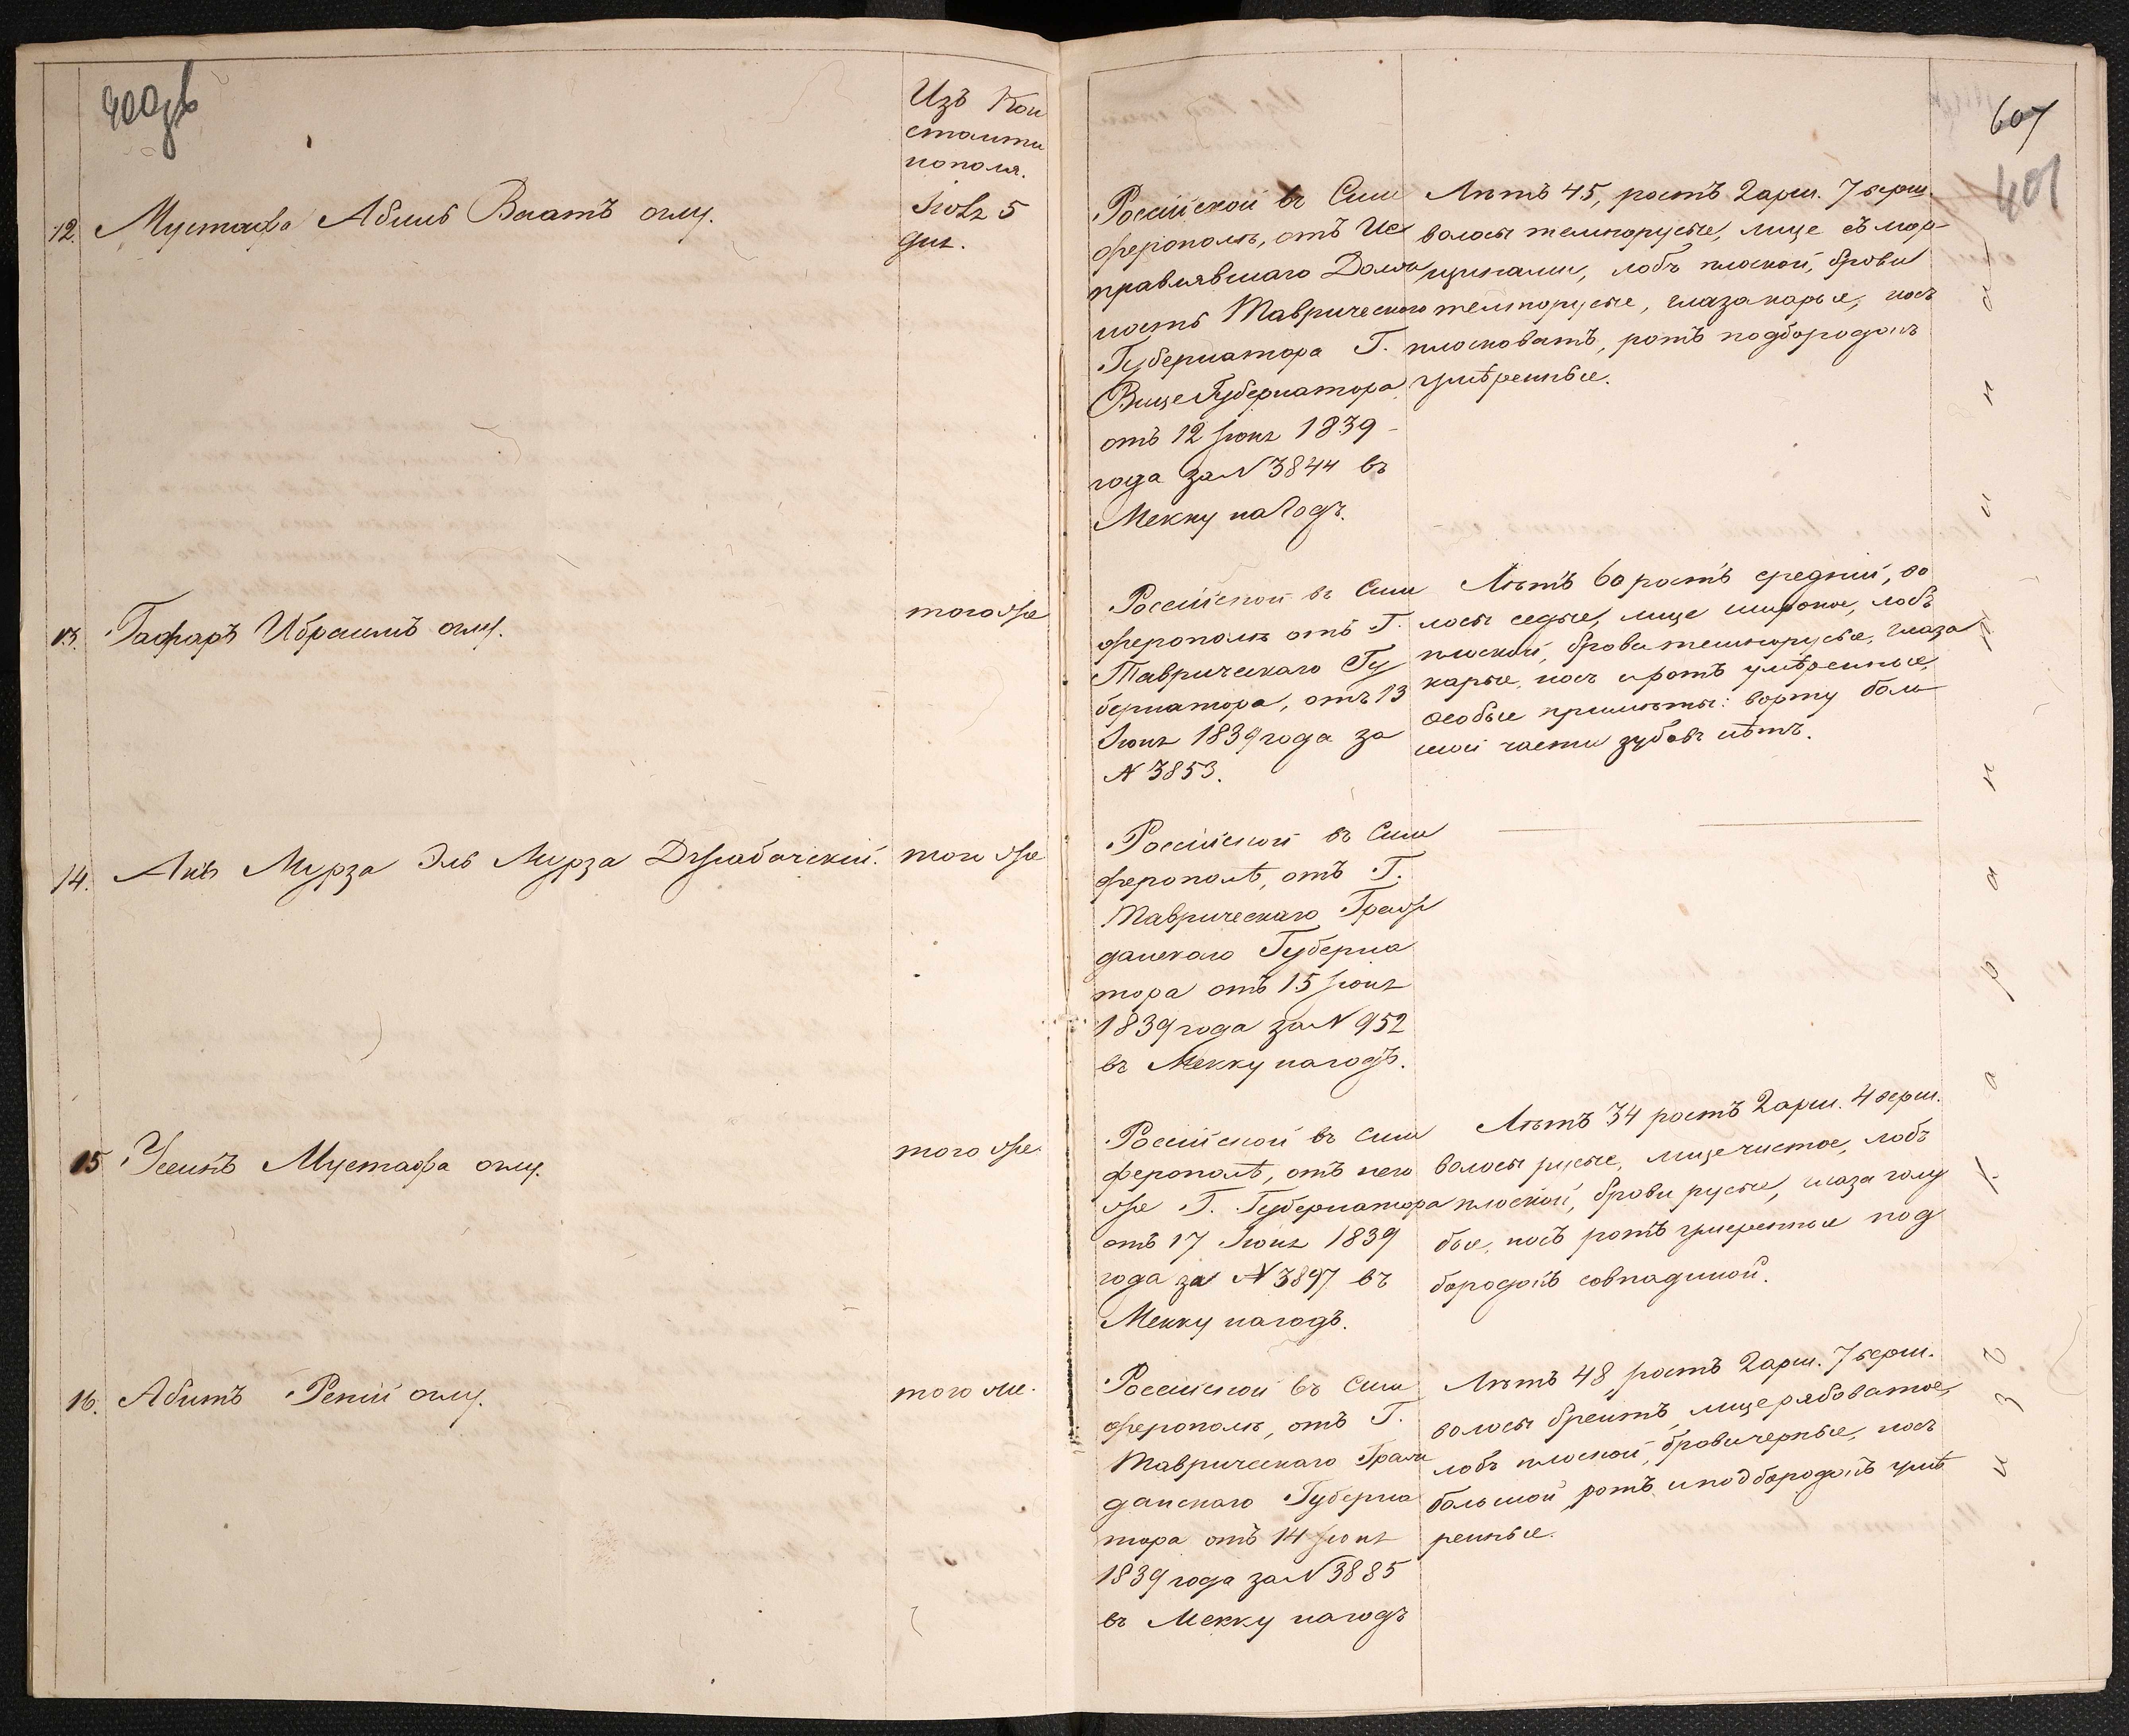 400об
Изъ Кон
станти
нополя.
Іюля 5
дня.
12. Мустафа Абиль Ваатъ оглу.
13. Гафаръ Ибраимъ оглу.
того же
14. Али Мурза Эль Мурза Джабачскій.
того же
15 Усеинъ Мустафа оглу.
того же
16. Абитъ оглу.
того же.
607
401
Россійской въ Сим
ферополѣ, отъ Ис
правлявшаго Долж
ность Таврическаго
Губернатора Г.
Вице Губернатора
отъ 12 Іюня 1839
года за N 3844 въ
Мекку на годъ.
Лѣтъ 45, ростъ 2 арш. 7 верш.
волосы темнорусые, лице съ мор-
щинами, лобъ плоской, брови
темнорусые, глаза карые, носъ
плосковатъ, ротъ подбородокъ
умѣренные.
Россійской въ Сим
ферополѣ отъ Г.
Таврическаго Гу
бернатора, отъ 13
Іюня 1839 года за
N 3853.
Лѣтъ 60 ростъ средній, во
лосы седые, лице широкое, лобъ
плоской, брови темнорусые, глаза
карые, носъ и ротъ умѣренные,
особые примѣты: ворту боль
шой части зубовъ нѣтъ.
Россійской въ Сим
ферополѣ, отъ Г.
Таврическаго Граж
данскаго Губерна
тора отъ 15 Іюня
1839 года за N 952
въ Мекку на годъ.
Россійской въ Сим
ферополѣ, отъ него
же Г. Губернатора
отъ 17 Іюня 1839
года за N 3897 въ
Мекку на годъ.
Лѣтъ 34 ростъ 2 арш. 4 верш.
волосы русые, лице чистое, лобъ
плоской, брови русые, глаза голу
бые, носъ ротъ умеренные под
бородокъ совпадиной.
Россійской въ Сим
ферополѣ, отъ Г.
Таврическаго Граж
данскаго Губерна
тора отъ 14 Іюня
1839 года за N 3885
въ Мекку на годъ
Лѣтъ 48 ростъ 2 арш. 7 верш.
волосы бреитъ, лице рябоватое,
лобъ плоской, брови черные, носъ
большой ротъ и подбородокъ умѣ
ренные.